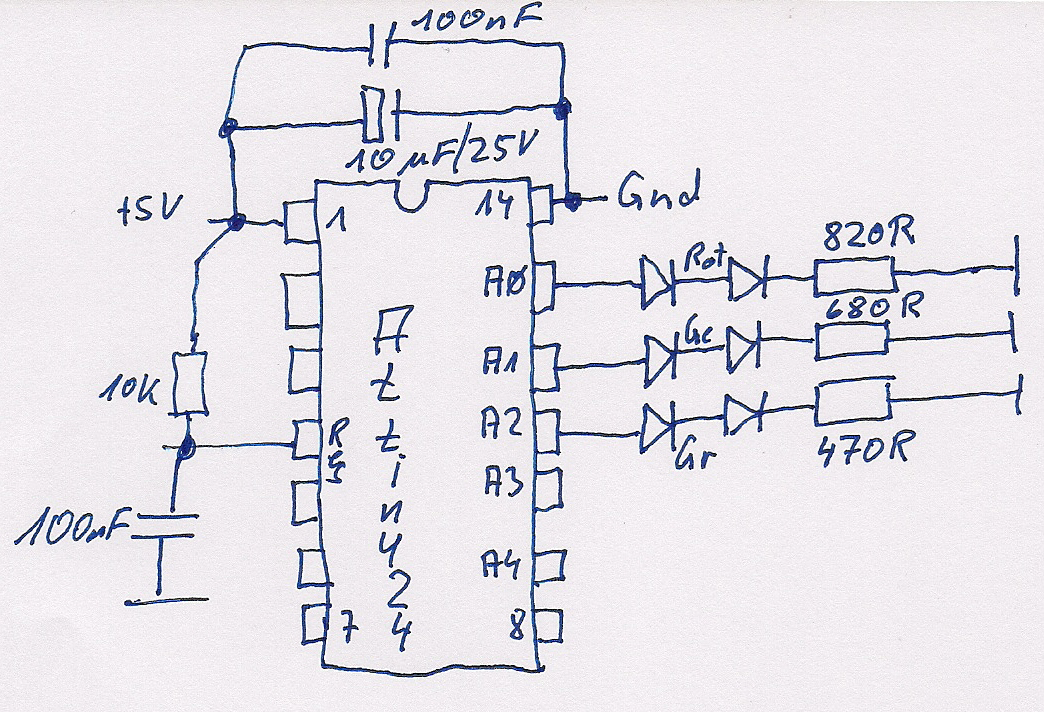 100nF
10µF/25V
+5V
1
14
Gnd
820R
A0
Rot
680R
A1
Ge
10K
A2
Gr
470R
RES
A3
100nF
A4
7
8
ATtiny24